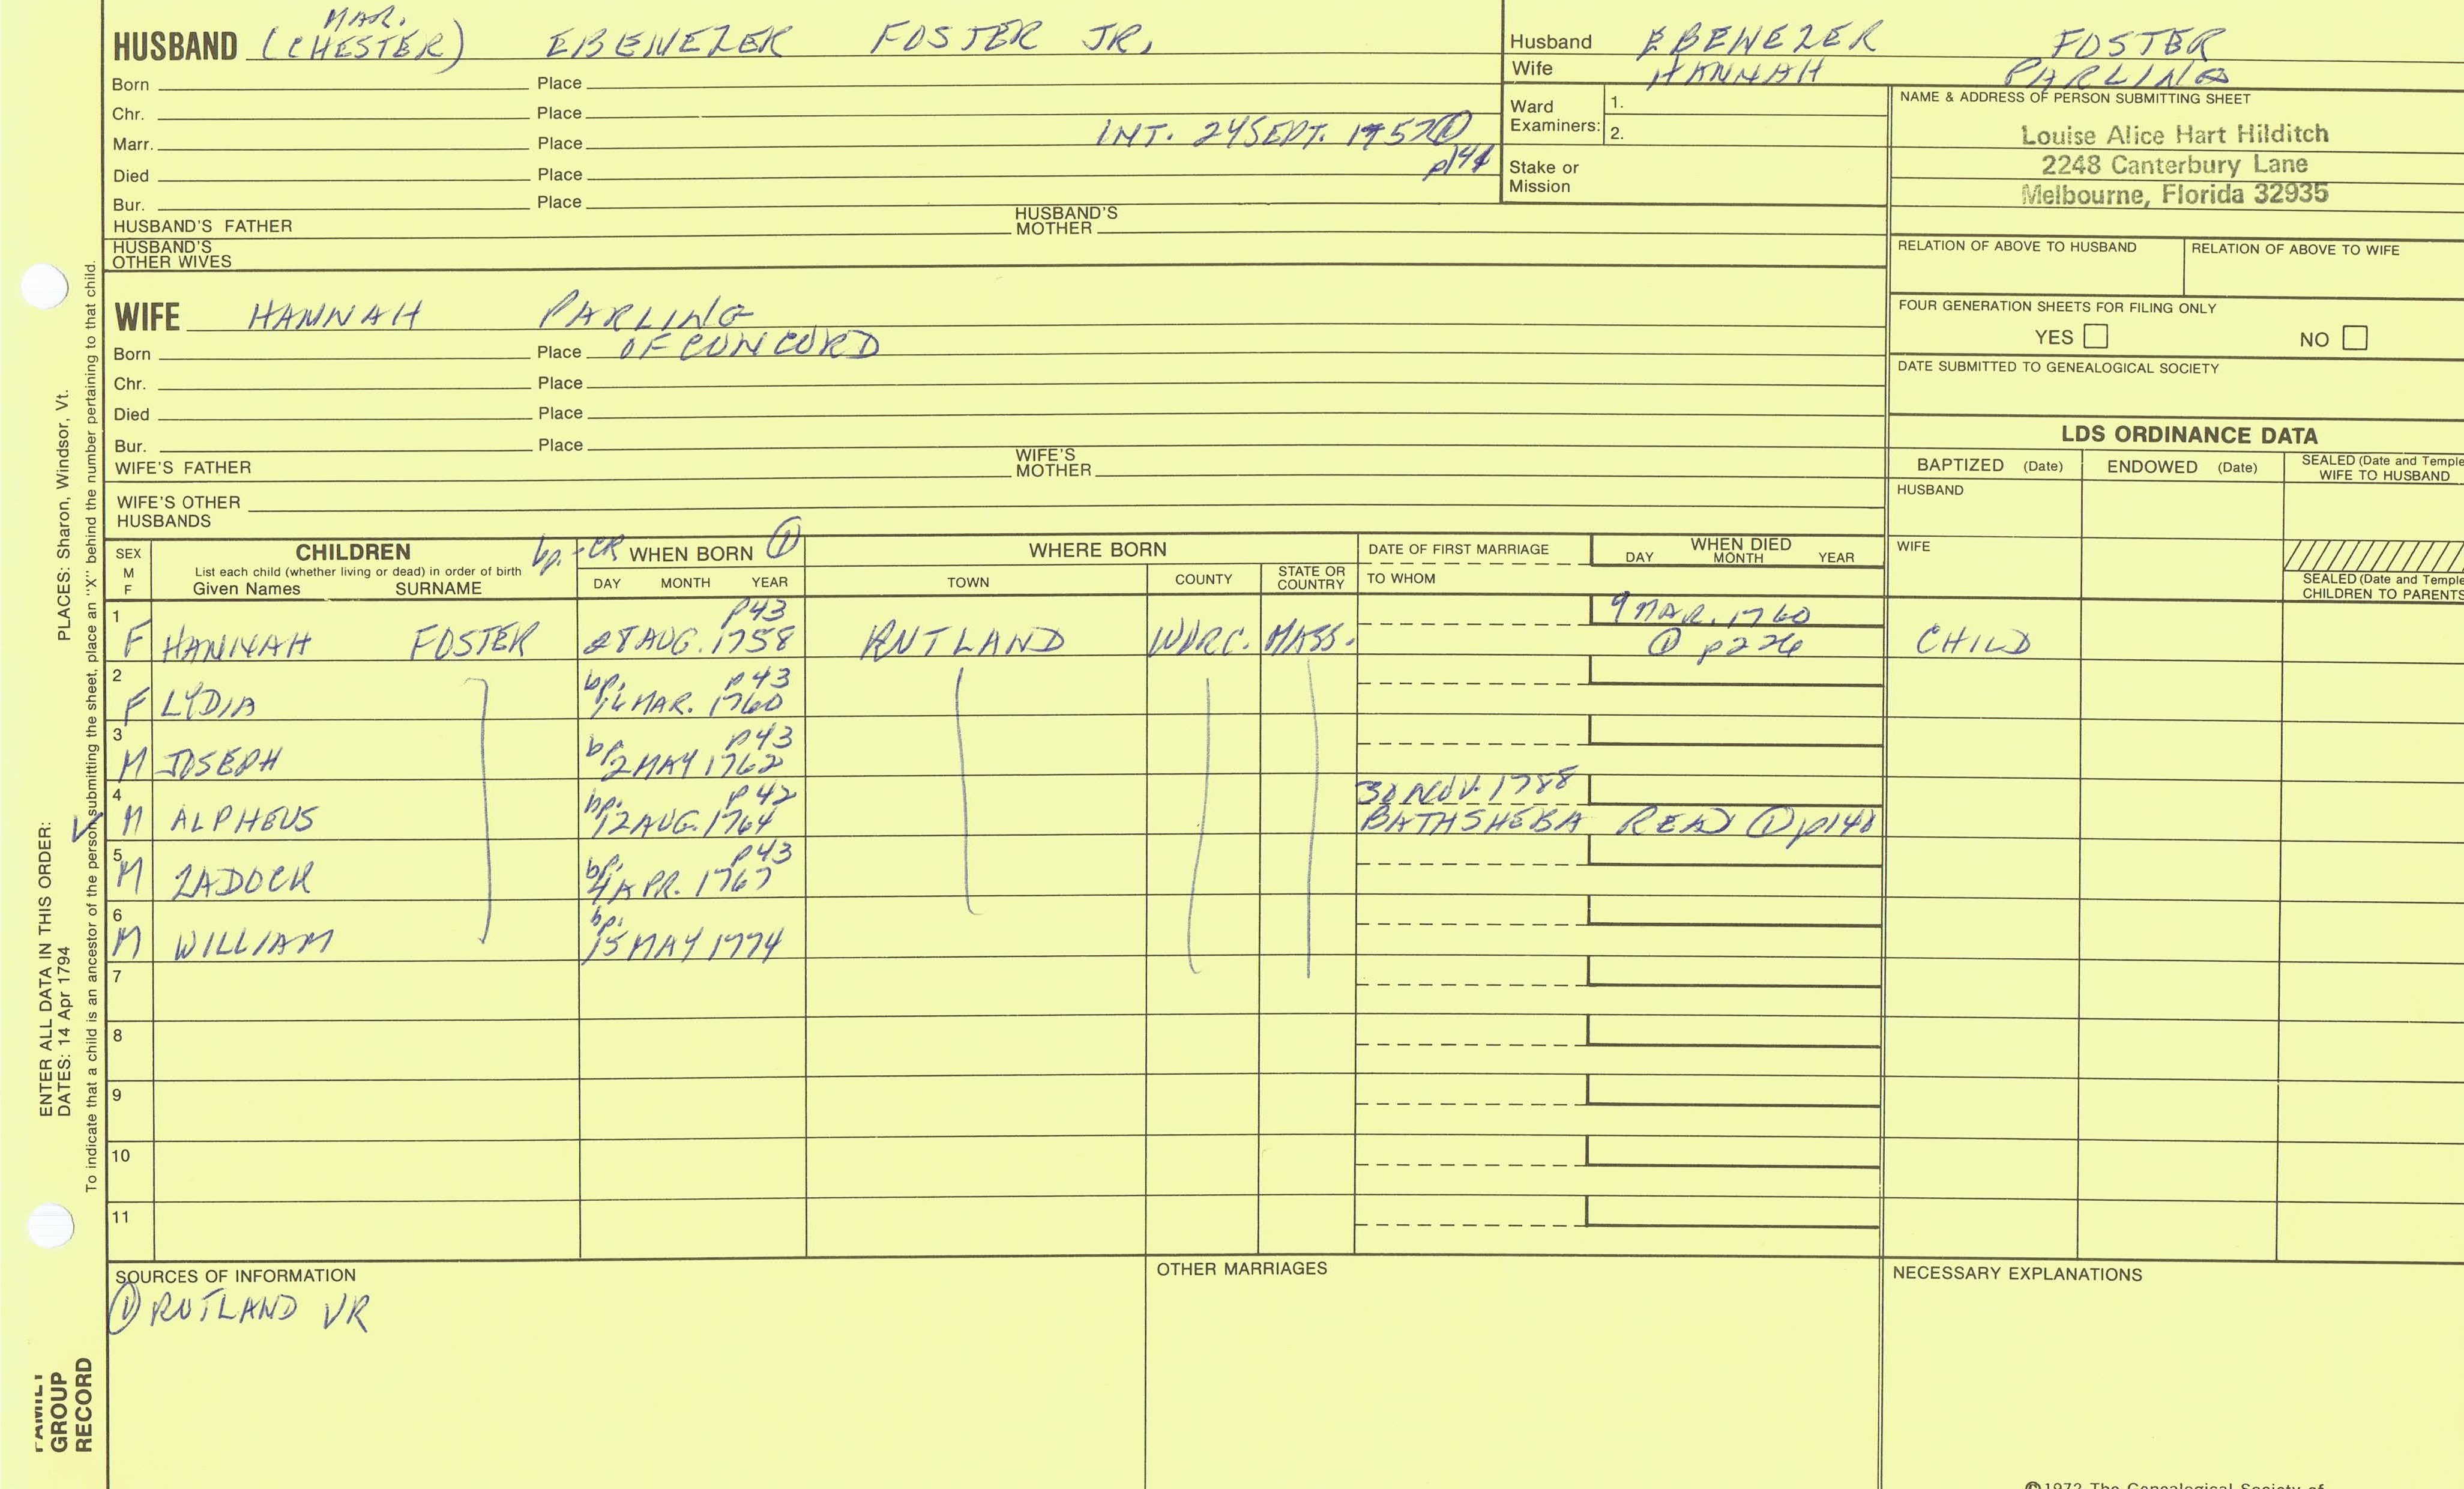 MAR.
HUSBAND (CHESTER) EBENEZER FOSTER JR.
Born Place
Chr. Place
Marr. Place INT. 24 SEPT. 1757 ①
p14
Died Place
Bur. Place
HUSBAND'S FATHER HUSBAND'S MOTHER
HUSBAND'S OTHER WIVES
Husband EBENEZER FOSTER
Wife HANNAH PARLING
Ward Examiners: 1.
2.
Stake or Mission
NAME & ADDRESS OF PERSON SUBMITTING SHEET
Louise Alice Hart Hilditch
2248 Canterbury Lane
Melbourne, Florida 32935
RELATION OF ABOVE TO HUSBAND RELATION OF ABOVE TO WIFE
FOUR GENERATION SHEETS FOR FILING ONLY
YES NO
DATE SUBMITTED TO GENEALOGICAL SOCIETY
WIFE HANNAH PARLING
Born Place OF CONCORD
Chr. Place
Died Place
Bur. Place
WIFE'S FATHER WIFE'S MOTHER
WIFE'S OTHER HUSBANDS
LDS ORDINANCE DATA
BAPTIZED (Date) ENDOWED (Date) SEALED (Date and Temple
WIFE TO HUSBAND
HUSBAND
WIFE
SEALED (Date and Temple
CHILDREN TO PARENTS
SEX M F
CHILDREN
List each child (whether living or dead) in order of birth
Given Names SURNAME
bp. - CR WHEN BORN ①
DAY MONTH YEAR
WHERE BORN
TOWN COUNTY STATE OR COUNTRY
DATE OF FIRST MARRIAGE
TO WHOM
WHEN DIED
DAY MONTH YEAR
1 P43 9 MAR. 1760
F HANNAH FOSTER 28 AUG. 1758 RUTLAND WORC. MASS. ① p226 CHILD
2 bp. P43
F LYDIA 16 MAR. 1760
3 bp. P43
M JOSEPH 2 MAY 1762
4 bp. P42 30 NOV. 1788
✓ M ALPHEUS 12 AUG. 1764 BATHSHEBA READ ① p148
5 bp. P43
M ZADOCK 4 APR. 1767
6 bp.
M WILLIAM 15 MAY 1774
7
8
9
10
11
SOURCES OF INFORMATION
① RUTLAND VR
OTHER MARRIAGES
NECESSARY EXPLANATIONS
©1972 The Genealogical Society of
ENTER ALL DATA IN THIS ORDER:
DATES: 14 Apr 1794 PLACES: Sharon, Windsor, Vt.
To indicate that a child is an ancestor of the person submitting the sheet, place an "X" behind the number pertaining to that child.
FAMILY
GROUP
RECORD